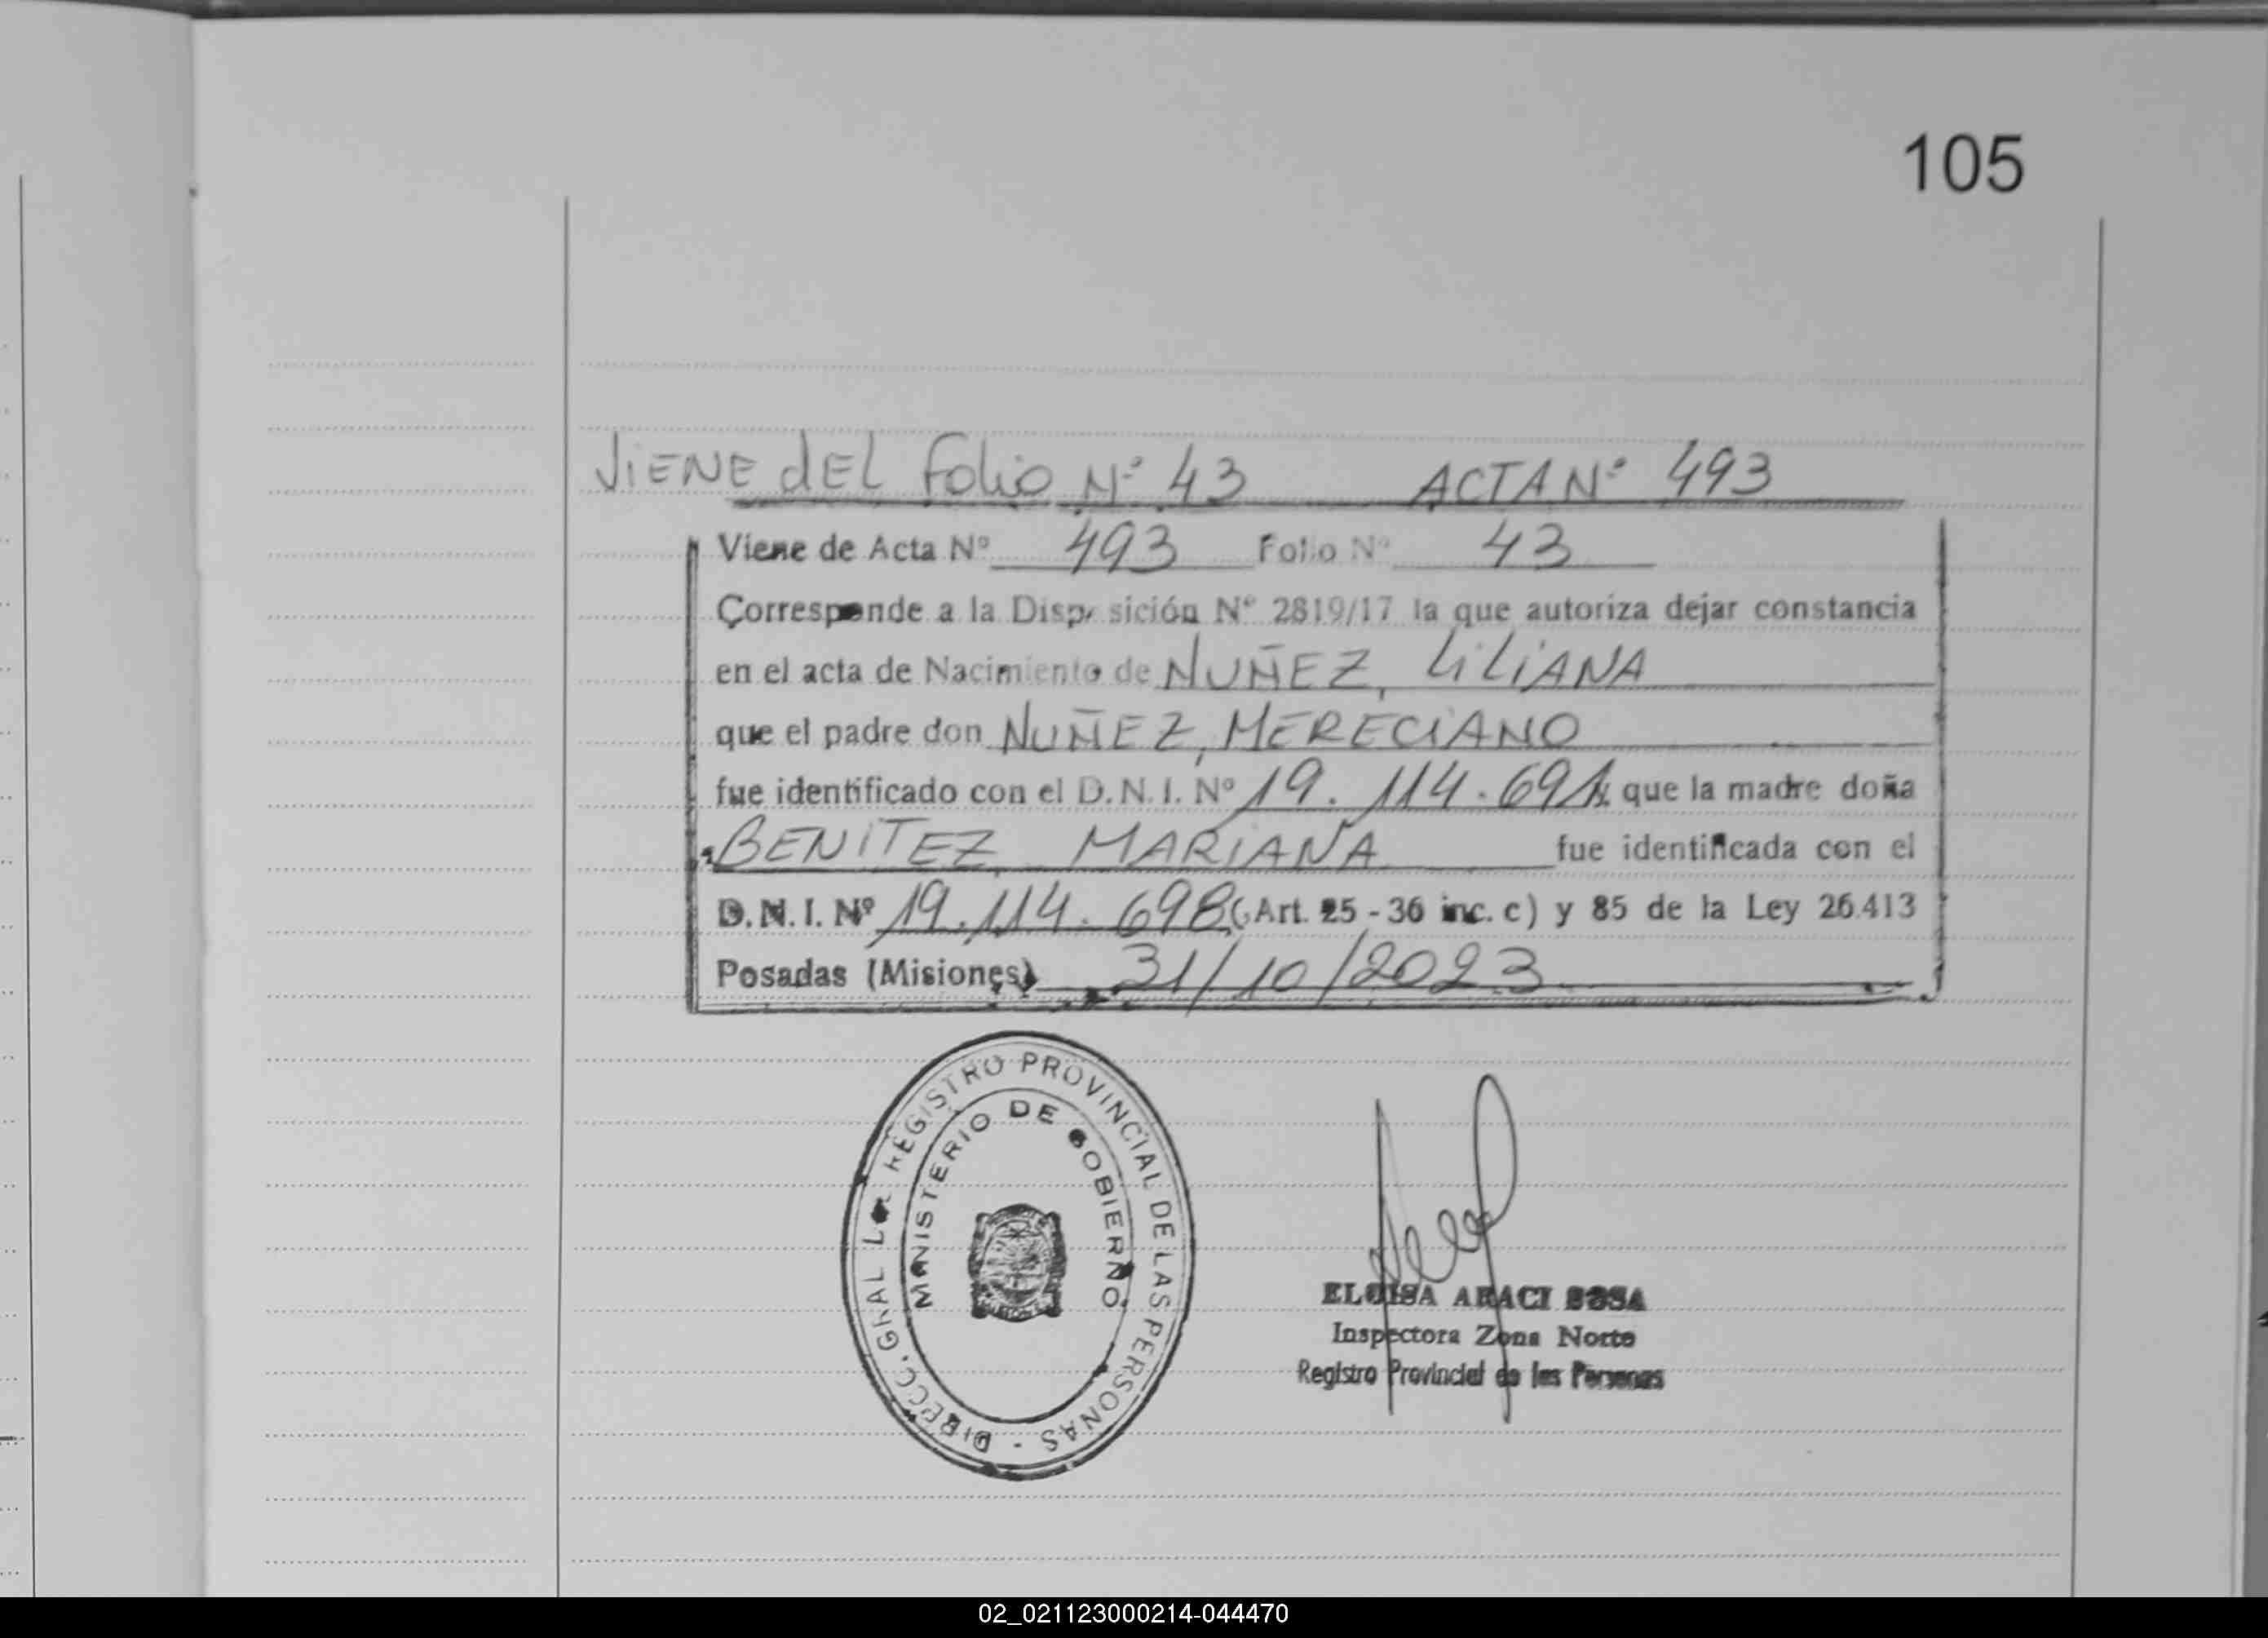 105
VIENE dEL Folio Nº 43 ACTA Nº 493
Viene de Acta Nº 493 Folio Nº 43
Corresponde a la Disposición Nº 2819/17 la que autoriza dejar constancia
en el acta de Nacimiento de NUÑEZ, LILIANA
que el padre don NUÑEZ, MERECIANO
fue identificado con el D.N.I. Nº 19.114.691 que la madre doña
BENITEZ, MARIANA fue identificada con el
D.N.I. Nº 19.114.698 (Art. 25 - 36 inc. c) y 85 de la Ley 26.413
Posadas (Misiones) 31/10/2023
DIRECC. GRAL DEL REGISTRO PROVINCIAL DE LAS PERSONAS -
MINISTERIO DE GOBIERNO
ELOISA ARACI SOSA
Inspectora Zona Norte
Registro Provincial de las Personas
02_021123000214-044470